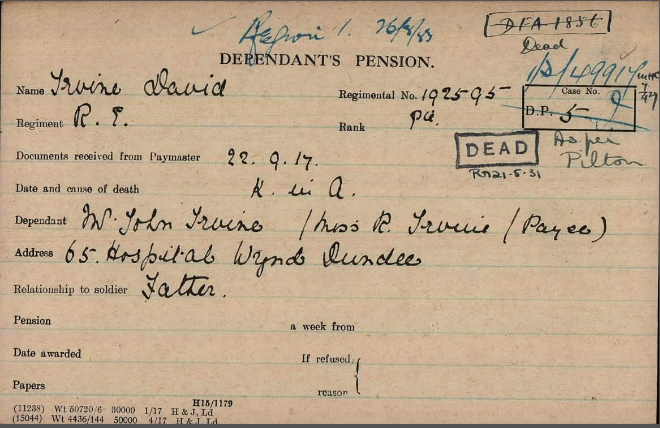 Region 1. 26/8/33
DFA 1886
Dead
DEPENDANT'S PENSION.
Name Irvine David
Regimental No. 192595
Case No.
D.P. 5 9
7/47
Regiment R. E.
Rank Pte.
DEAD
As per
Pilton
Documents received from Paymaster 22. 9. 17.
21-5-31
Date and cause of death K. in A.
Dependant Mr John Irvine / Miss R. Irvine (Payee)
Address 65. Hospital Wynd Dundee
Relationship to soldier Father.
Pension a week from
Date awarded If refused,
Papers reason
H15/1179
(11238) Wt 50720/6 30000 1/17 H & J, Ld
(15044) Wt 4436/144 50000 4/17 H & J, Ld